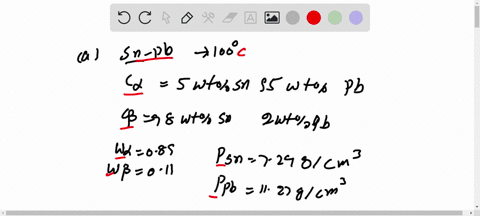 (a) Sn-pb → 100°C
Cα = 5 wto% sn 95 wto% pb
Cβ = 98 wto% sn 2wto%pb
Wα = 0.89
Wβ = 0.11
Psn = 7.29 g/cm³
Ppb = 11.27 g/cm³